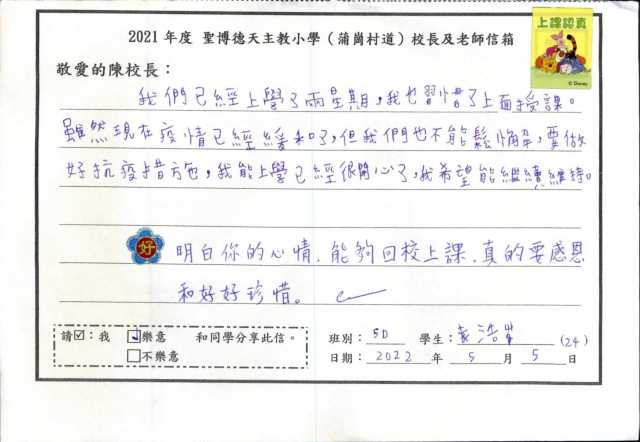 上課認真
© Disney
2021 年度 聖博德天主教小學(蒲崗村道)校長及老師信箱
敬愛的陳校長：
我們已經上學了兩星期，我也習惜了上面授課。
雖然現在疫情已經緩和了，但我們也不能鬆懈，要做
好抗疫措施，我能上學已經很開心了，我希望能繼續維持。
好 明白你的心情，能夠回校上課，真的要感恩
和好好珍惜。
請☑：我 ☑樂意 和同學分享此信。
□不樂意
班別： 5D 學生： 浩 (24)
日期： 2022 年 5 月 5 日